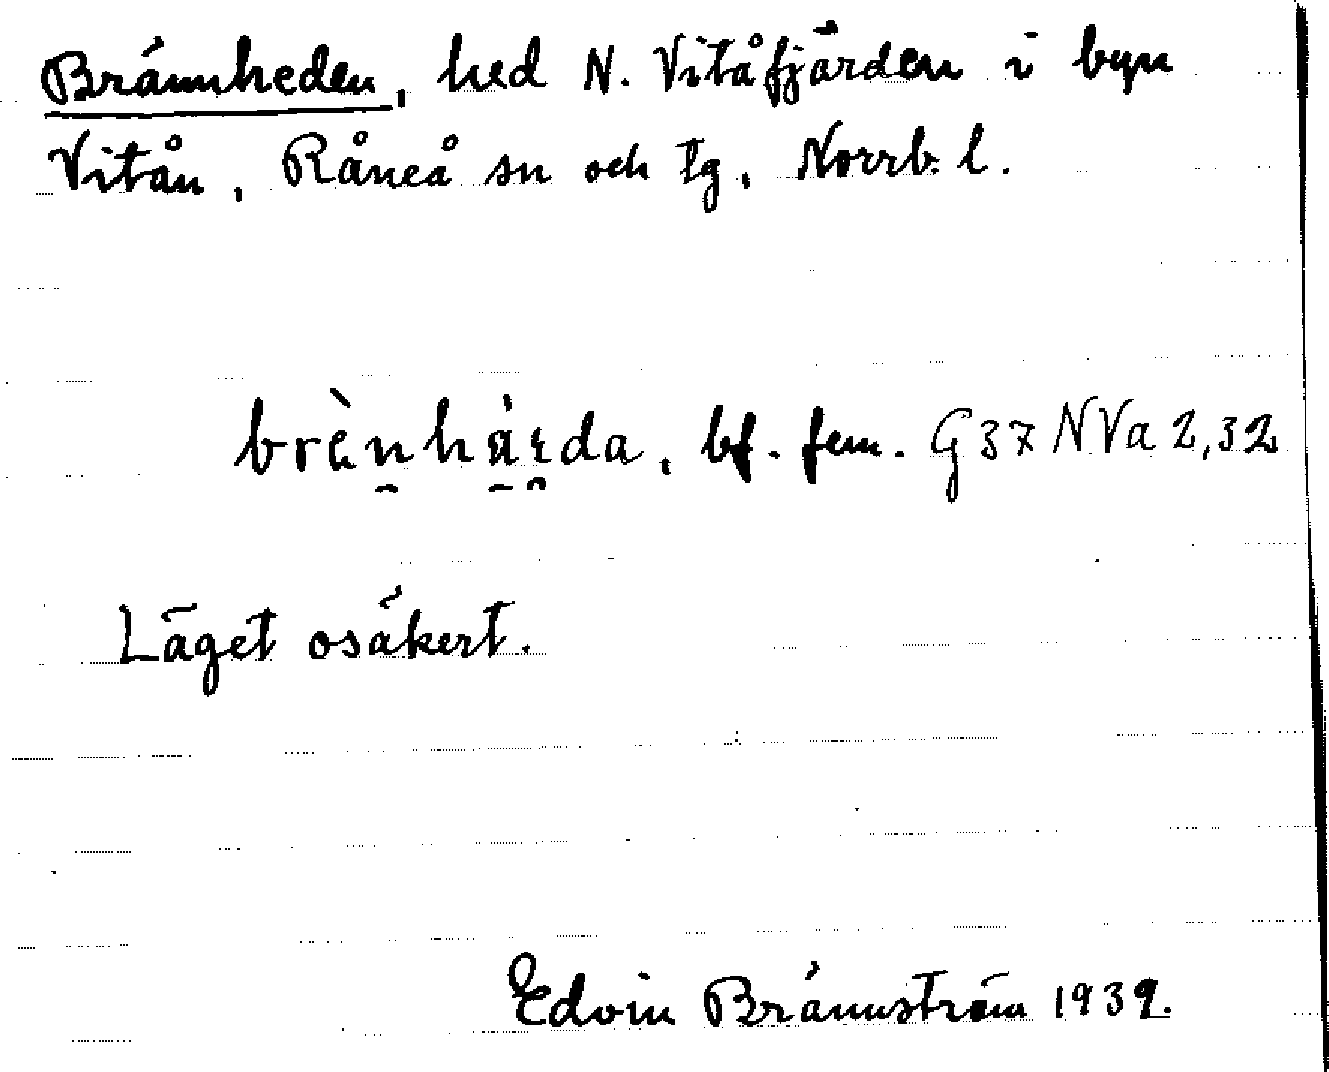 Brännheden, hed N. Vitåfjärden i byn
Vitån, Råneå sn och tg, Norrb. l.
bf. fem. G37 NVa 2,32
Läget osäkert.
Edvin Brännström 1939.